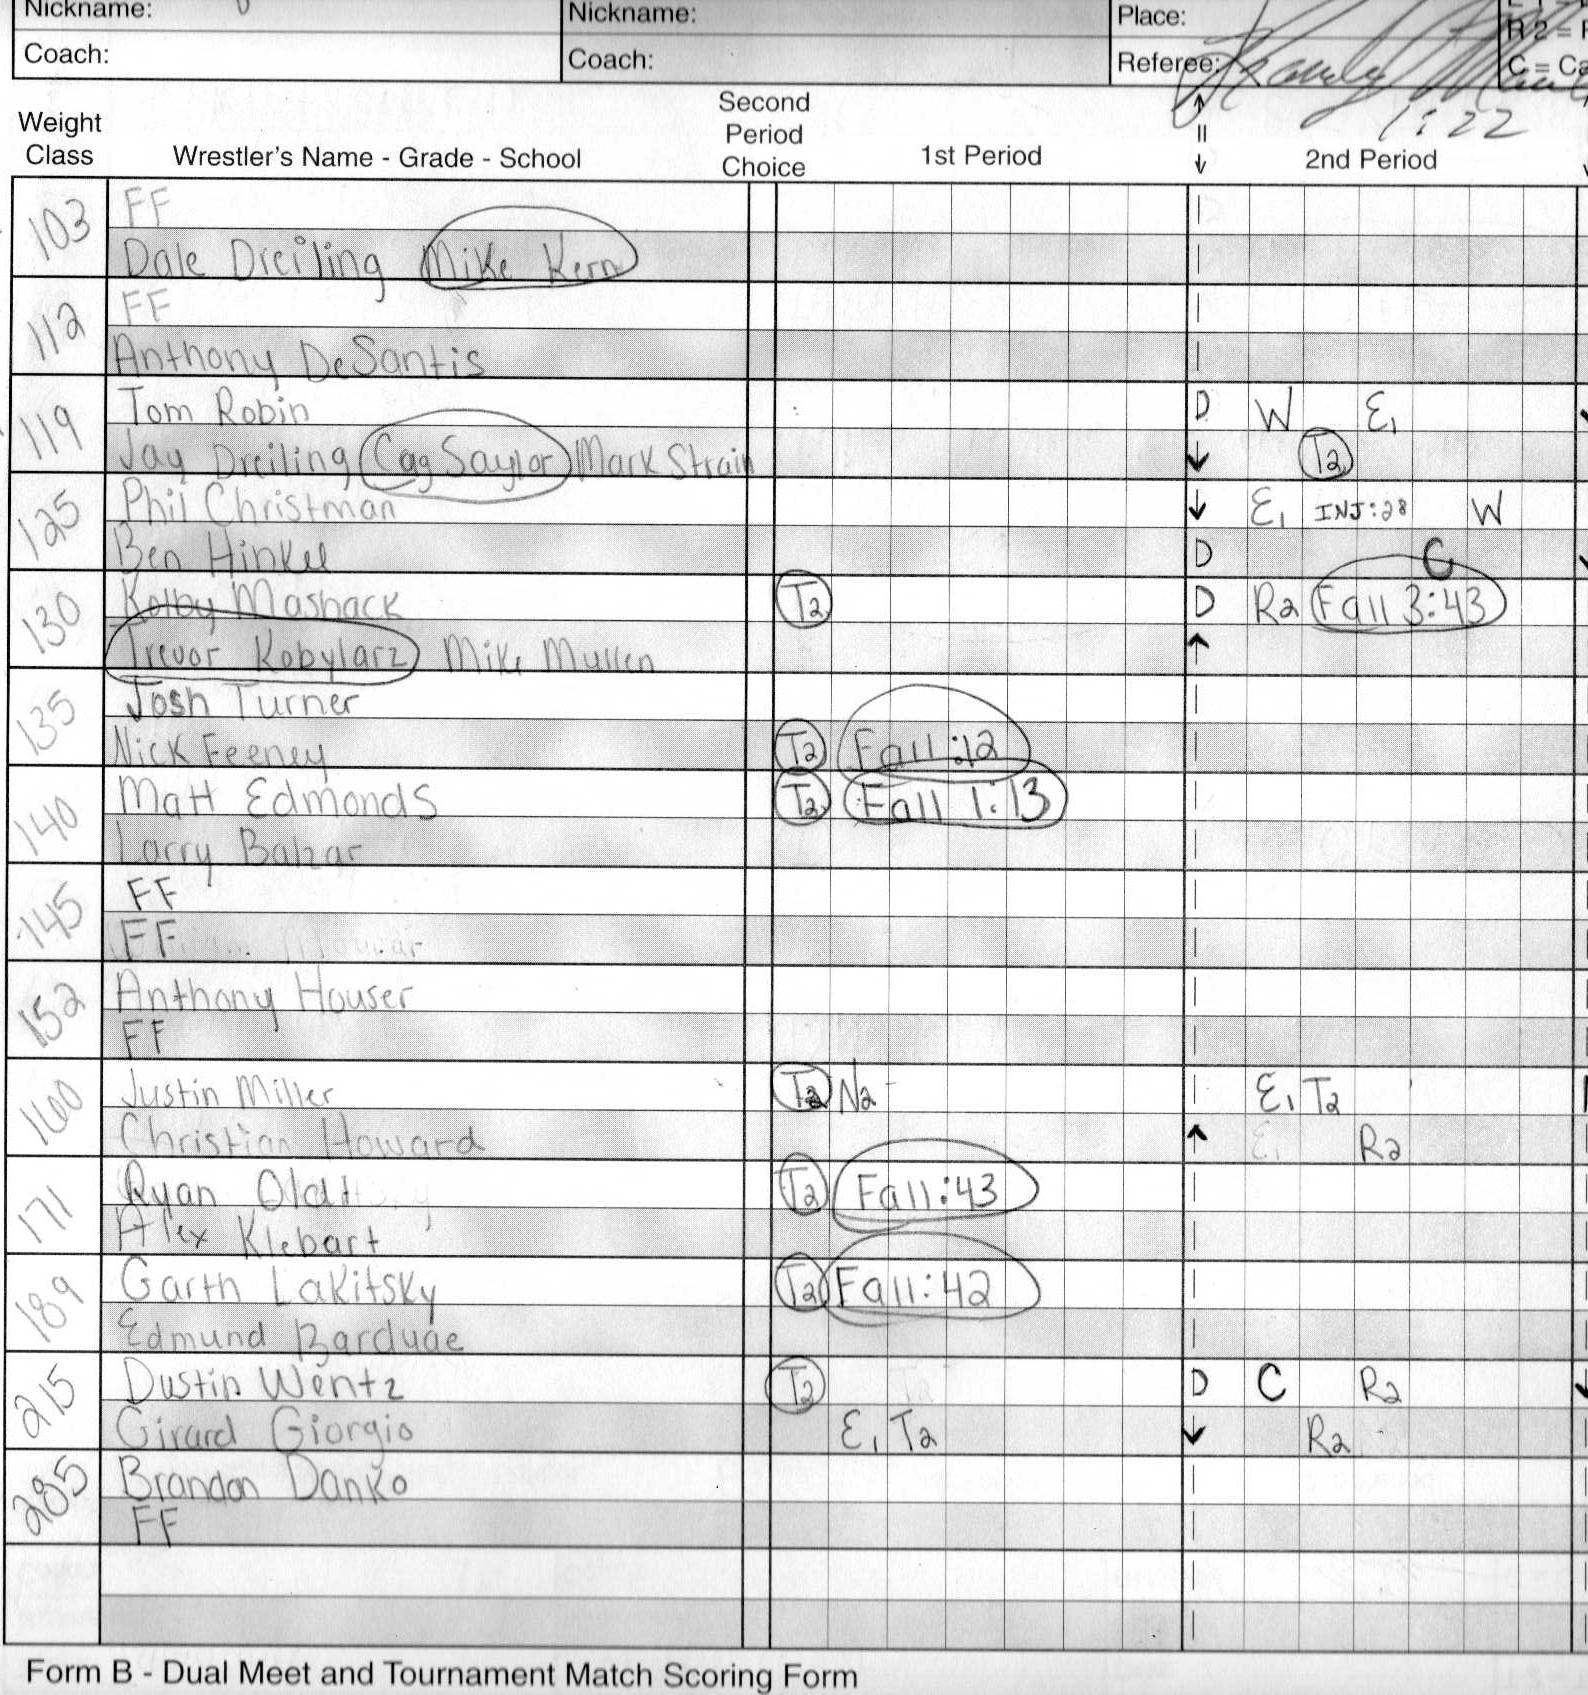 Nickname: Nickname: Place:
R 2 =
Coach: Coach: Referee: C = Ca
1:22
Second
Weight Period
Class Wrestler's Name - Grade - School Choice 1st Period 2nd Period
103 FF
Dale Dreiling Mike Kern
112 FF
Anthony DeSantis
119 Tom Robin D W E1
Jay Dreiling Cag Saylor Mark Strain ↓ T2
125 Phil Christman ↓ E1 INJ:28 W
Ben Hinkel D C
130 Kolby Mashack T2 D R2 Fall 3:43
Trevor Kobylarz Mike Mullen ↑
135 Josh Turner
Nick Feeney T2 Fall :12
140 Matt Edmonds T2 Fall 1:13
Larry Balzar
145 FF
FF
152 Anthony Houser
FF
160 Justin Miller T2 N2 E1 T2
Christian Howard ↑ E1 R2
171 Ryan Oldt T2 Fall :43
Alex Klebart
189 Garth Lakitsky T2 Fall :42
Edmund Barduae
215 Dustin Wentz T2 D C R2
Girard Giorgio E1 T2 ↓ R2
285 Brandon Danko
FF
Form B - Dual Meet and Tournament Match Scoring Form